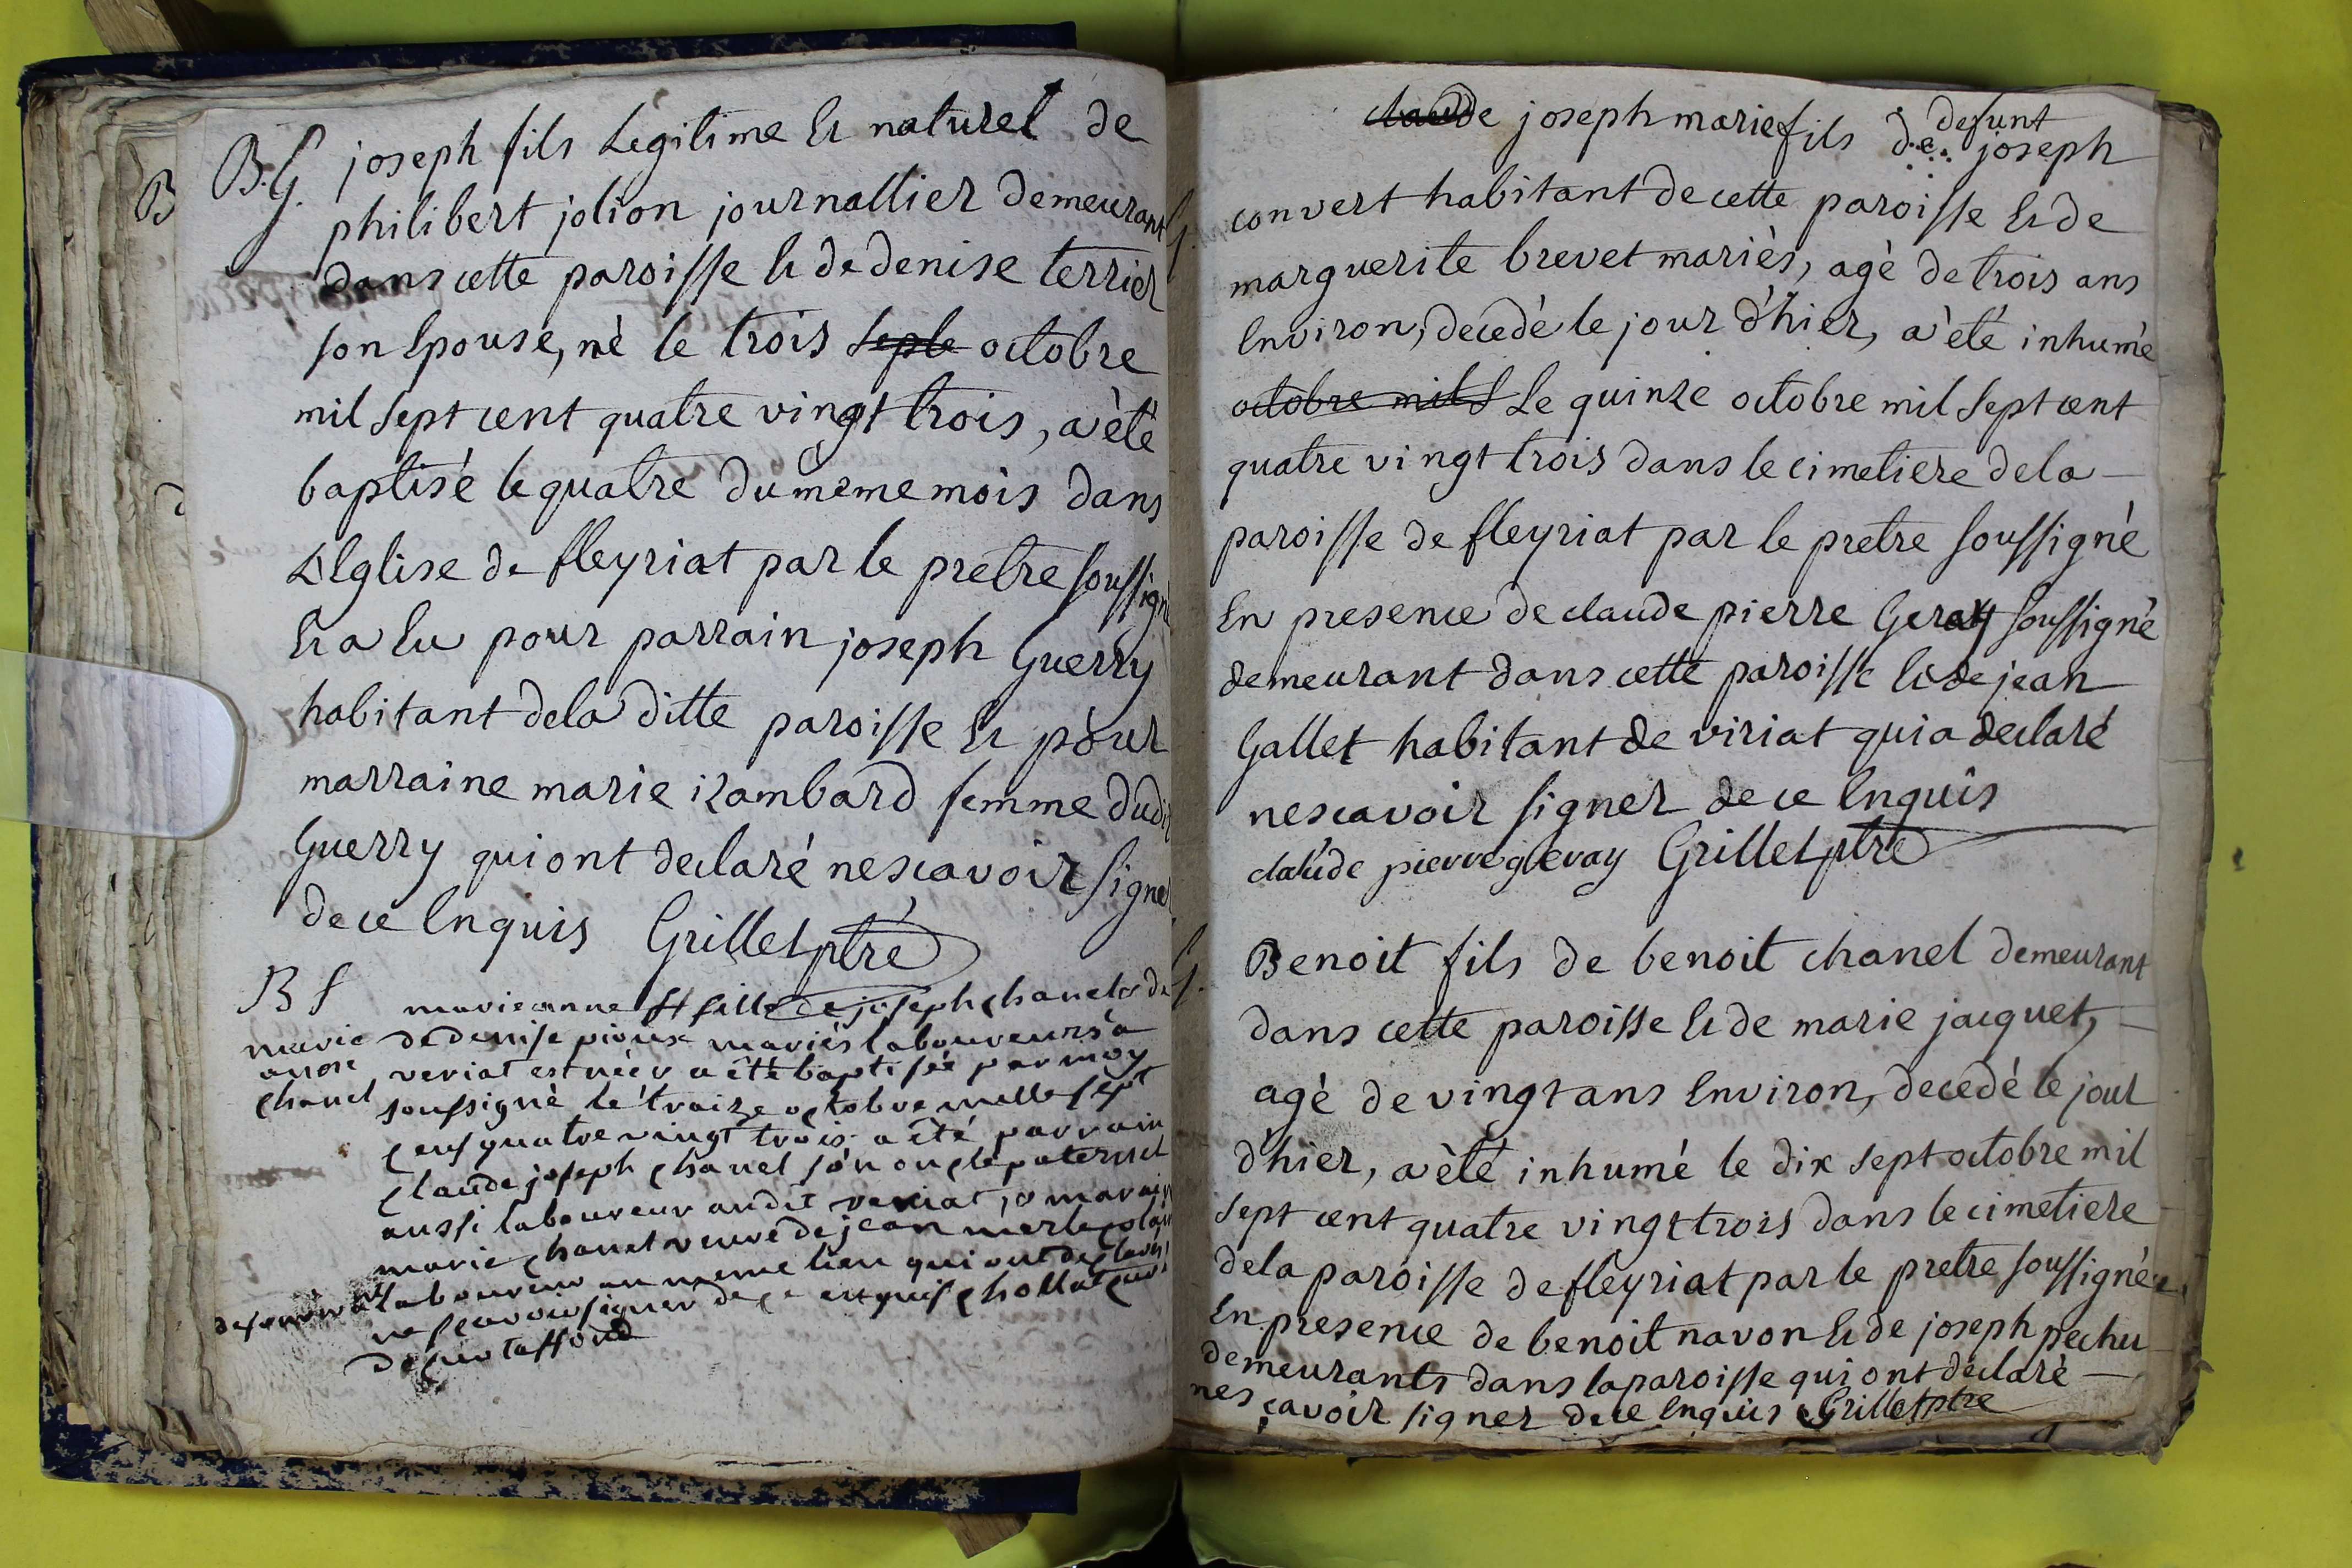 B.G. joseph fils Legitime & naturel de
philibert jolion journallier demeurant
dans cette paroisse & de denise terrier
son Epouse, nè le trois septe octobre
mil sept cent quatre vingt trois, a èté
baptisé le quatre du mème mois dans
L'Eglise de fleyriat par le pretre soussigné
& a Eu pour parrain joseph Guerry
habitant dela ditte paroisse & pour
marraine marie izambard femme dudit
Guerry qui ont declaré nescavoir signer
de ce Enquis Grillet ptre
B f
marie anne chanel
marieanne fille de joseph chanel & de
de denise pioux mariés laboureurs a
veriat est née & a été baptisée par moy
soussigné le traize octobre mille sept
cens quatre vingt trois a été parrain
claude joseph chanel son oncle paternel
aussi laboureur audit veriat, & marain
marie chanel veuve de jean merle
laboureur au meme lieu qui ont declaré
ne scavoir signer de ce enquis chollat
claude joseph mariefils de defunt joseph
convert habitant de cette paroisse & de
marguerite brevet mariès, agè de trois ans
Environ, decedè le jour d'hier, a èté inhumè
octobre mil s Le quinze octobre mil sept cent
quatre vingt trois dans le cimetiere dela
paroisse de fleyriat par le pretre soussigné
En presence de claude pierre Geray soussignè
demeurant dans cette paroisse & de jean
Gallet habitant de viriat qui a declaré
nescavoir signer de ce Enquis
claude pierre geray Grillet ptre
Benoit fils de benoit chanel demeurant
dans cette paroisse & de marie jacquet,
agè de vingt ans Environ, decedé le jour
d'hier, a èté inhumé le dix sept octobre mil
sept cent quatre vingt trois dans le cimetiere
dela paroisse de fleyriat par le pretre soussigné
En presence de benoit navon & de joseph pechu
demeurants dans la paroisse qui ont declarè
nescavoir signer de ce Enquis Grillet ptre